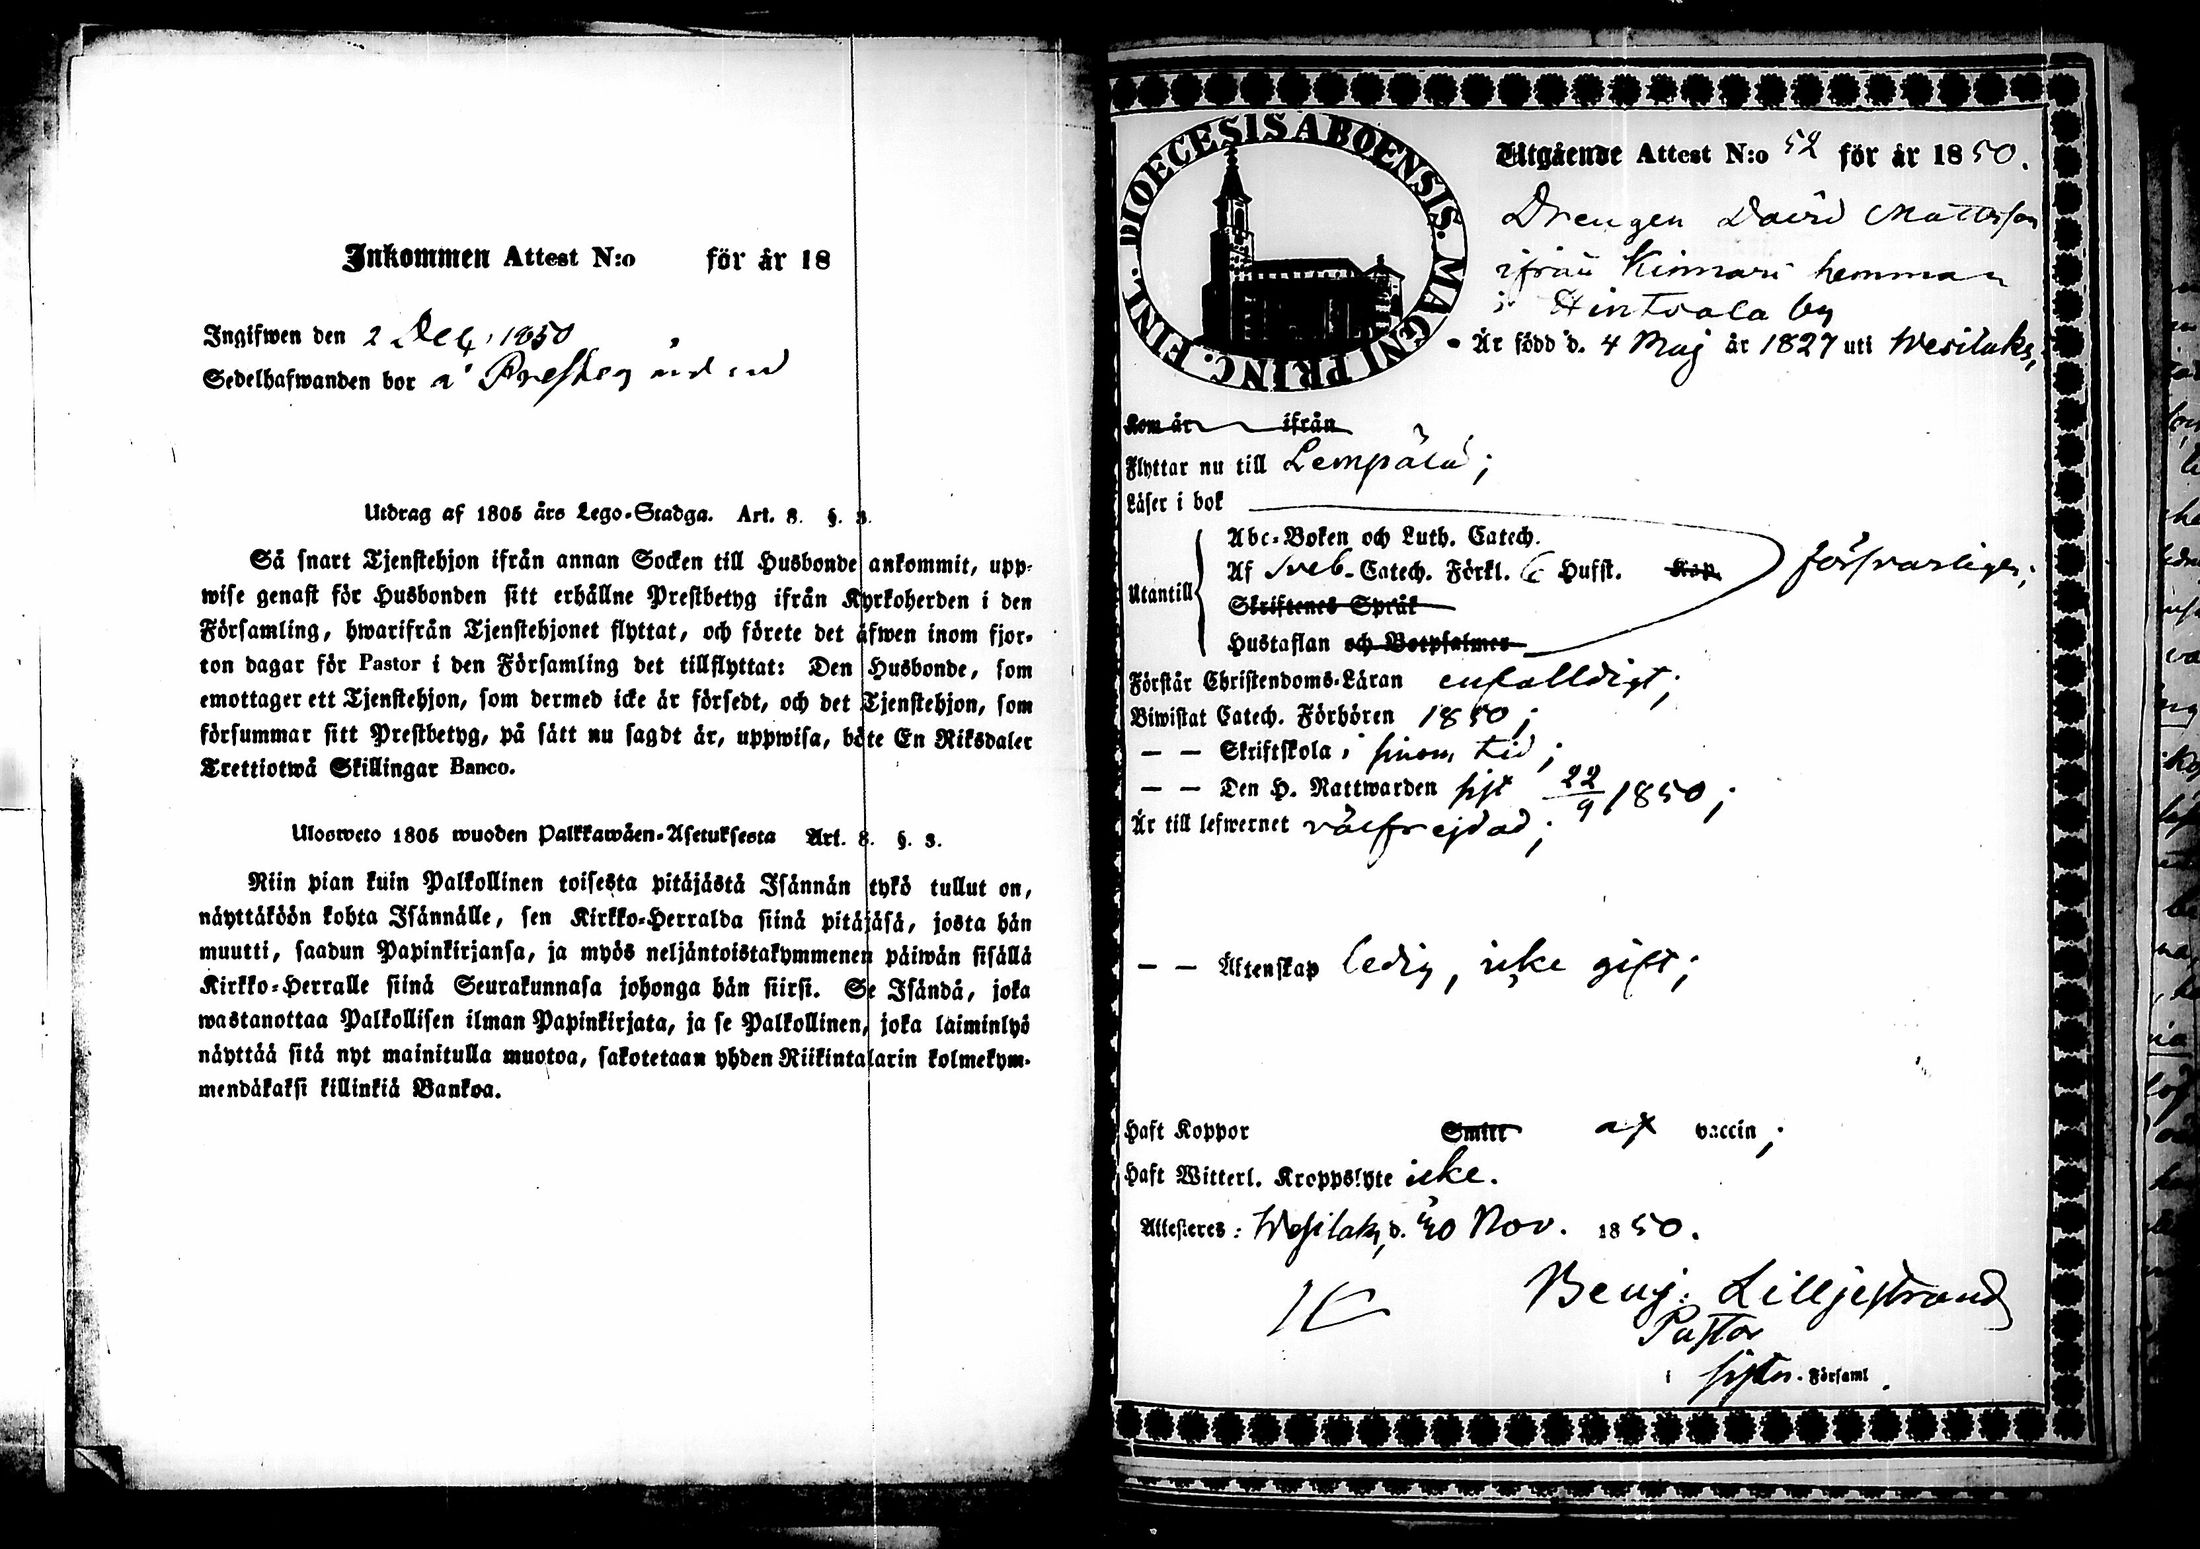 Inkommen Attest N:o för år 18
Ingifwen den 2 Dec, 1850
Sedelhafwanden bor å Prestegården
Utdrag af 1805 års Lego-Stadga. Art. 8. §. 3.
Så snart Tjenstehjon ifrån annan Socken till Husbonde ankommit, upp-
wise genast för Husbonden sitt erhållne Prestbetyg ifrån Kyrkoherden i den
Församling, hwarifrån Tjenstehjonet flyttat, och förete det äfwen inom fjor-
ton dagar för Pastor i den Församling det tillflyttat: Den Husbonde, som
emottager ett Tjenstehjon, som dermed icke är försedt, och det Tjenstehjon, som
försummar sitt Prestbetyg, på sätt nu sagdt är, uppwisa, böte En Riksdaler
Trettiotwå Skillingar Banco.
Ulosweto 1805 wuoden Palkkawäen-Asetuksesta Art. 8. §. 3.
Niin pian kuin Palkollinen toisesta pitäjästä Isännän tykö tullut on,
näyttäköön kohta Isännälle, sen Kirkko-Herralda siinä pitäjäsä, josta hän
muutti, saadun Papinkirjansa, ja myös neljäntoistakymmenen päiwän sisällä
Kirkko-Herralle siinä Seurakunnasa johonga hän siirsi. Se Isändä, joka
wastanottaa Palkollisen ilman Papinkirjata, ja se Palkollinen, joka laiminlyö
näyttää sitä nyt mainitulla muotoa, sakotetaan yhden Riikintalarin kolmekym-
mendäkaksi killinkiä Bankoa.
DIOECESIS ABOENSIS. MAGNI PRINC. FINL.
Utgående Attest N:o 52 för år 1850.
Drengen David Mattsson
ifrån Kinnari hemman
i Hintsala by
Är född d. 4 Maj år 1827 uti Wesilaks,
Kom år ifrån
Flyttar nu till Lempälä;
Läser i bok
Abc-Boken och Luth. Catech.
Utantill Af Sveb. Catech. Förkl. 6 Hufst. Kap. försvarliget;
Skriftenes Språk
Hustaflan och Botpsalmer
Förstår Christendoms-Läran enfalldigt;
Biwistat Catech. Förhören 1850;
— — Skriftskola i sinom tid;
— — Den H. Nattwarden sist 22/9 1850;
Är till lefwernet välfrejdad;
— — Äktenskap ledig, icke gift;
Haft Koppor Smitt af vaccin;
Haft Witterl. Kroppslyte icke.
Attesteres: Wesilaks, d. 30 Nov. 1850.
Benj. Lilljestrand
Pastor
i Förssaml.